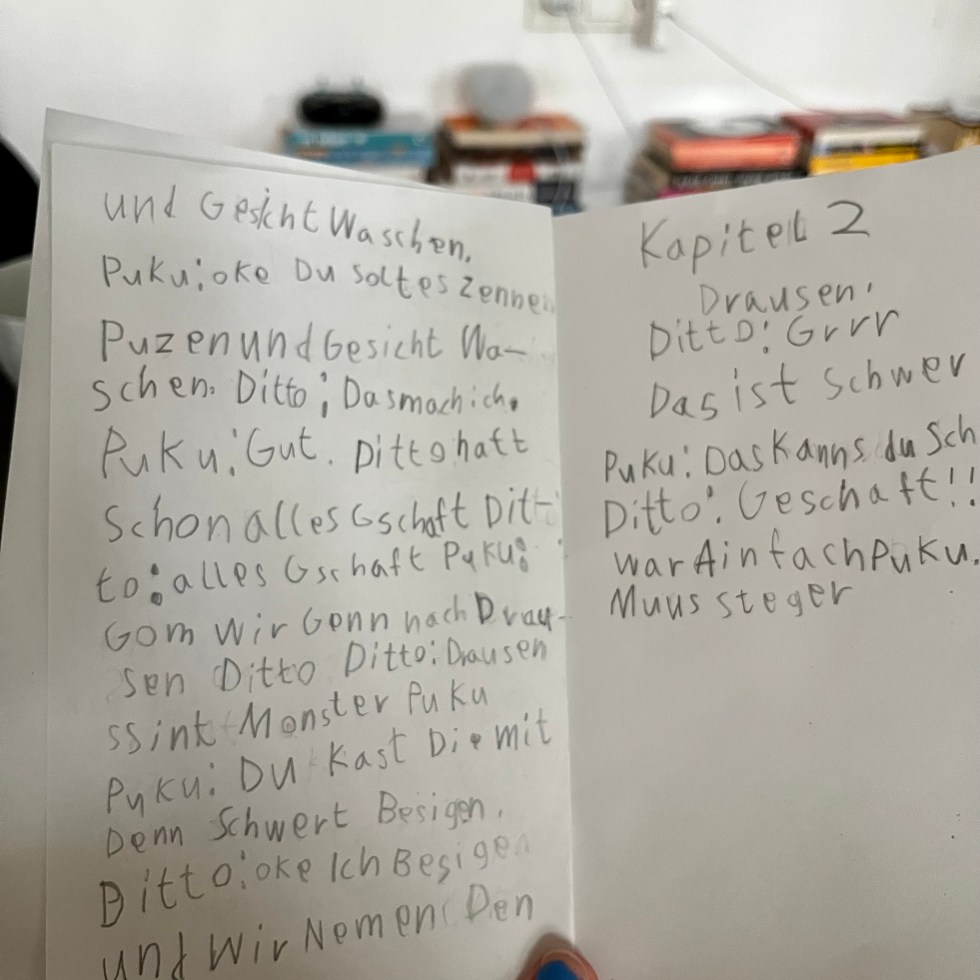 und Gesicht Waschen.
Puku: oke Du soltes Zennen
Puzen und Gesicht Wa-
schen. Ditto: Das mach ich.
Puku: Gut. Ditto haft
Schon alles Gschaft Dit-
to: alles Gschaft Puku:
Gom wir Gonn nach Drau-
sen Ditto Ditto: Drausen
ssint Monster Puku
Puku: Du Kast Die mit
Denn Schwert Besigen.
Ditto: oke Ich Besigen
und Wir Nemen Den
Kapitel 2
Drausen.
Ditto: Grrr
Das ist Schwer
Puku: Das Kanns du Sch
Ditto: Geschaft!!
war Ainfach Puku.
Muus steger